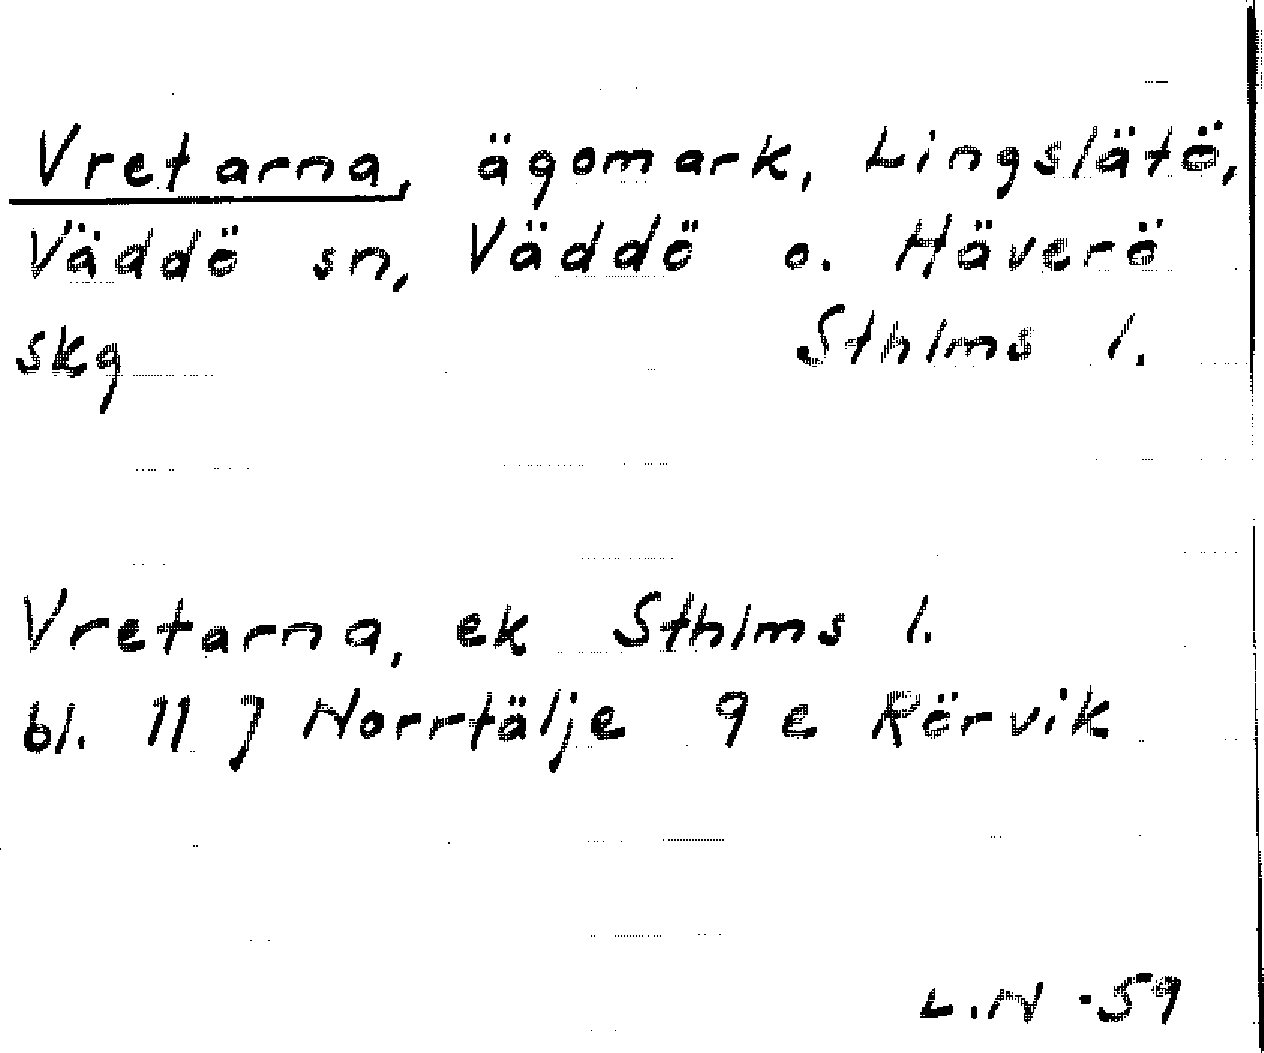 Vretarna, ägomark, Lingslätö,
Väddö sn, Väddö o. Häverö
skg Sthlms l.
Vretarna, ek Sthlms l.
bl. 11 J Norrtälje 9 e Rörvik
L.N -59